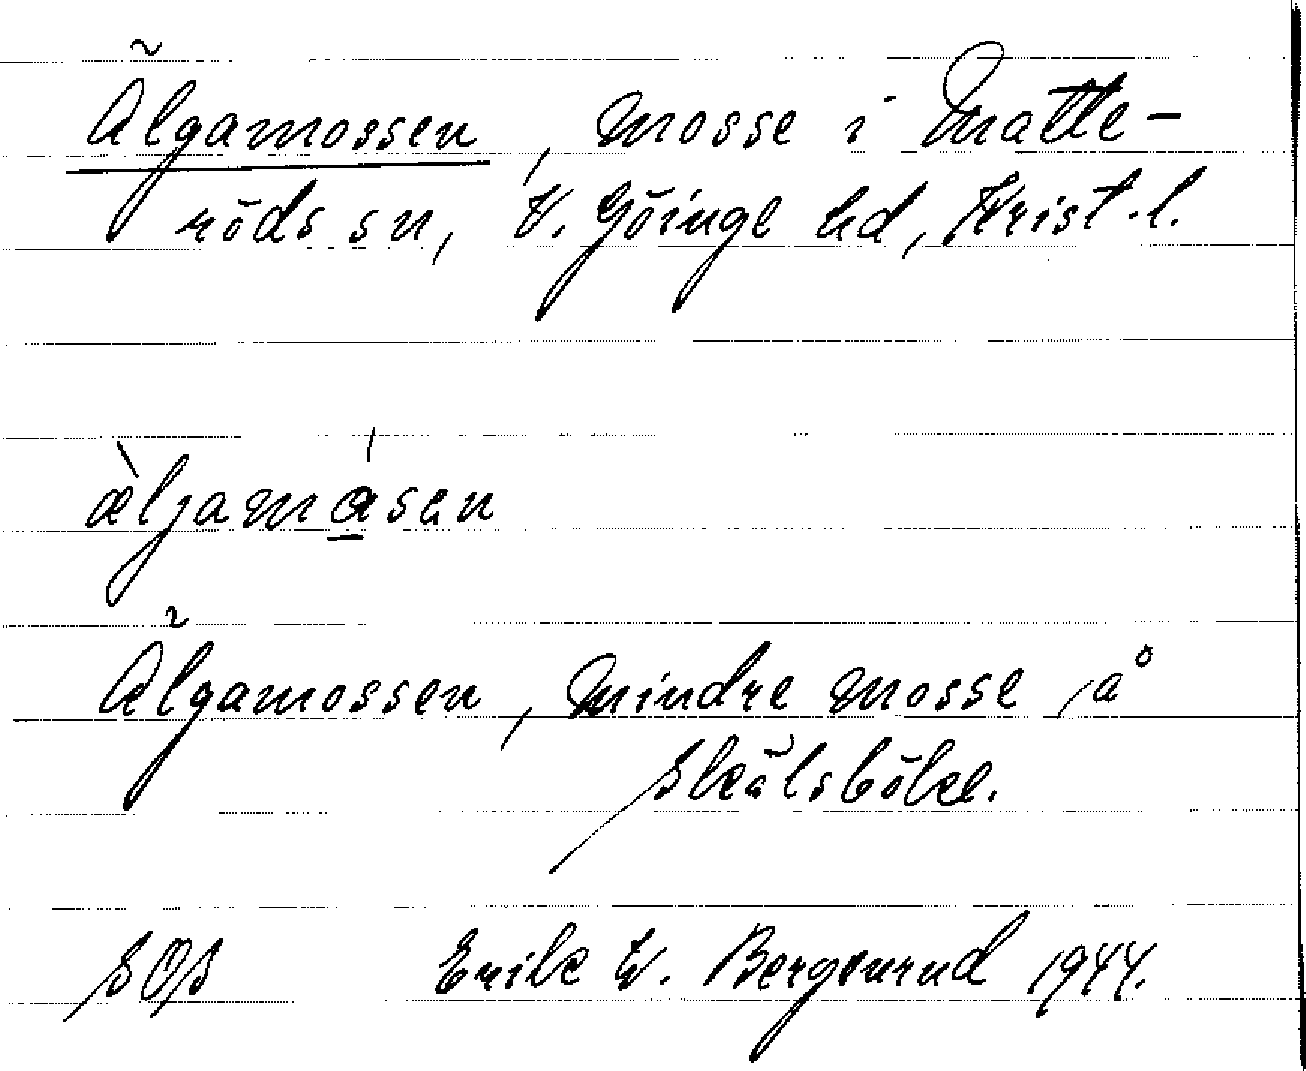 Älgamossen, mosse i Matte-
röds sn, V. Göinge hd, Krist.l.
æ̀ljamɑ́sen
Älgamossen, mindre mosse å
Skälsböke.
SOS Erik W.
1944.